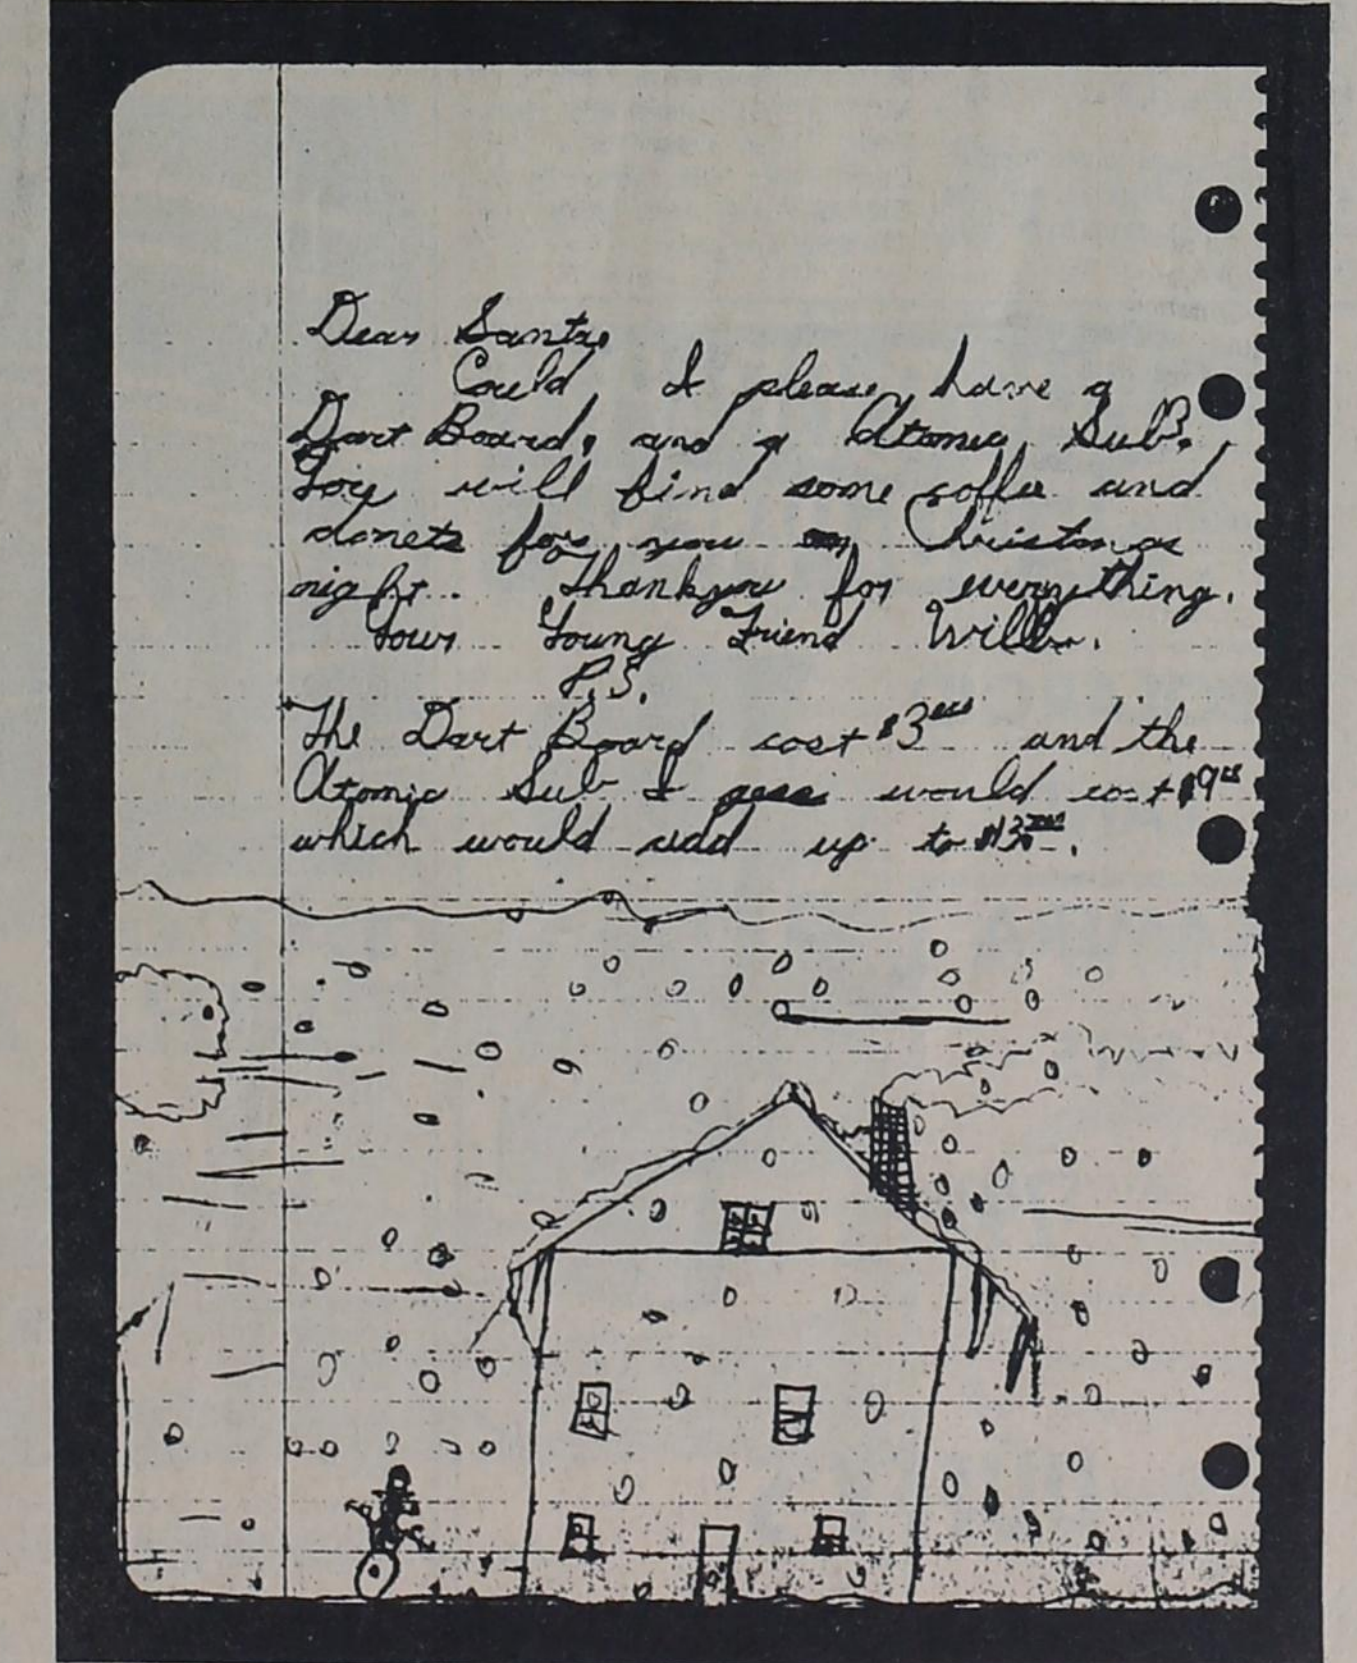 Dear Santa,
Could I please have a
Dart Board, and a Atomic Sub.
You will find some coffee and
donets for you on Christmas
night. Thankyou for everything.
Your Young Friend Will.
P.S.
The Dart Board cost $3 and the
Atomic Sub I gess would cost $9
which would add up to